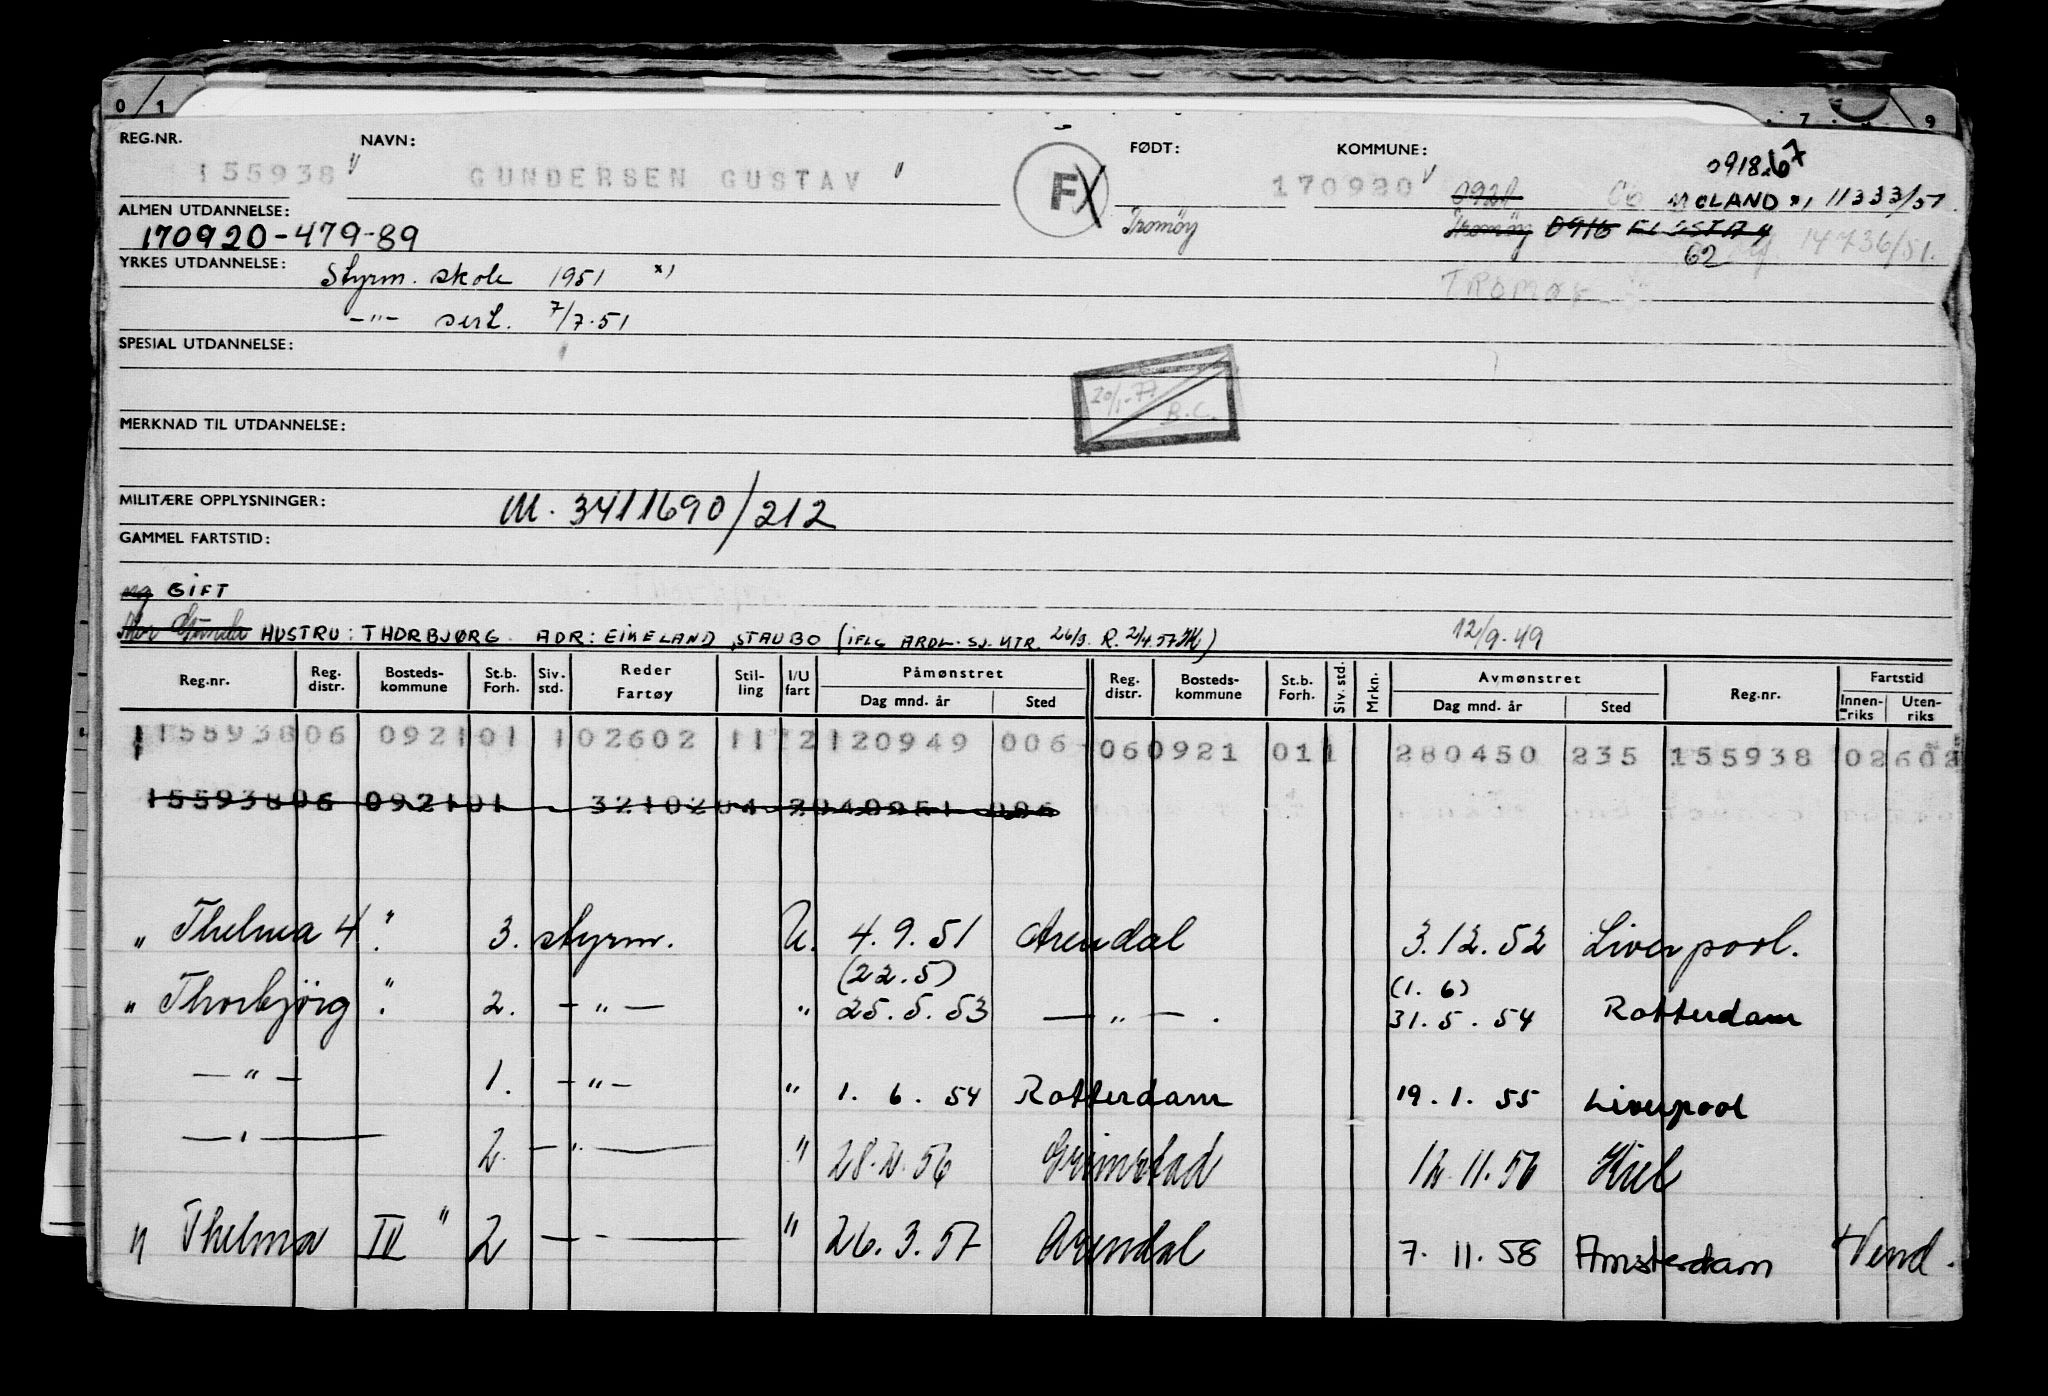 0 / 1 7 . 9
REG.NR. NAVN: FØDT: KOMMUNE: 0918.67
155938 " GUNDERSEN GUSTAV " F 170920 0921 MOLAND *) 11333/57
ALMEN UTDANNELSE: Tromöy Tromöy 0916 FLOSTA 14736/51.
170920-479-89 62
YRKES UTDANNELSE: Styrm. skole 1951 *) TROMØY
-"- sert. 7/7.51
SPESIAL UTDANNELSE:
20/1-77 B.C.
MERKNAD TIL UTDANNELSE:
MILITÆRE OPPLYSNINGER: M. 3411690/212
GAMMEL FARTSTID:
ug GIFT
Mor Gunda HUSTRU: THORBJØRG. ADR: EIKELAND, STAUBO (IFLG ARDL. SJ. MTR. 26/3. R. 2/4.57 12/9.49
Reg.nr. Reg. distr. Bosteds- kommune St.b. Forh. Siv. std. Reder Fartøy Stil- ling I/U fart Påmønstret Dag mnd. år Sted Reg. distr. Bosteds- kommune St.b. Forh. Siv. std. Mrkn. Avmønstret Dag mnd. år Sted Reg.nr. Fartstid Innen- riks Uten- riks
115593806 092101 102602 11 2 120949 006 060921 011 280450 235 155938 02602
15593806 092101 32102 04 2 040951 006
" Thelma 4 " . 3. styrm. U. 4.9.51 Arendal 3.12.52 Liverpool.
(22.5) (1.6)
" Thorbjörg " . 2. -"- " 25.5.53 -"- . 31.5.54 Rotterdam
-"- 1. -"- " 1.6.54 Rotterdam 19.1.55 Liverpool
-"- 2. -"- " 28.2.56 Grimstad 12.11.56 Kiel
" Thelma IV " 2 -"- " 26.3.57 Arendal 7.11.58 Amsterdam Vend.